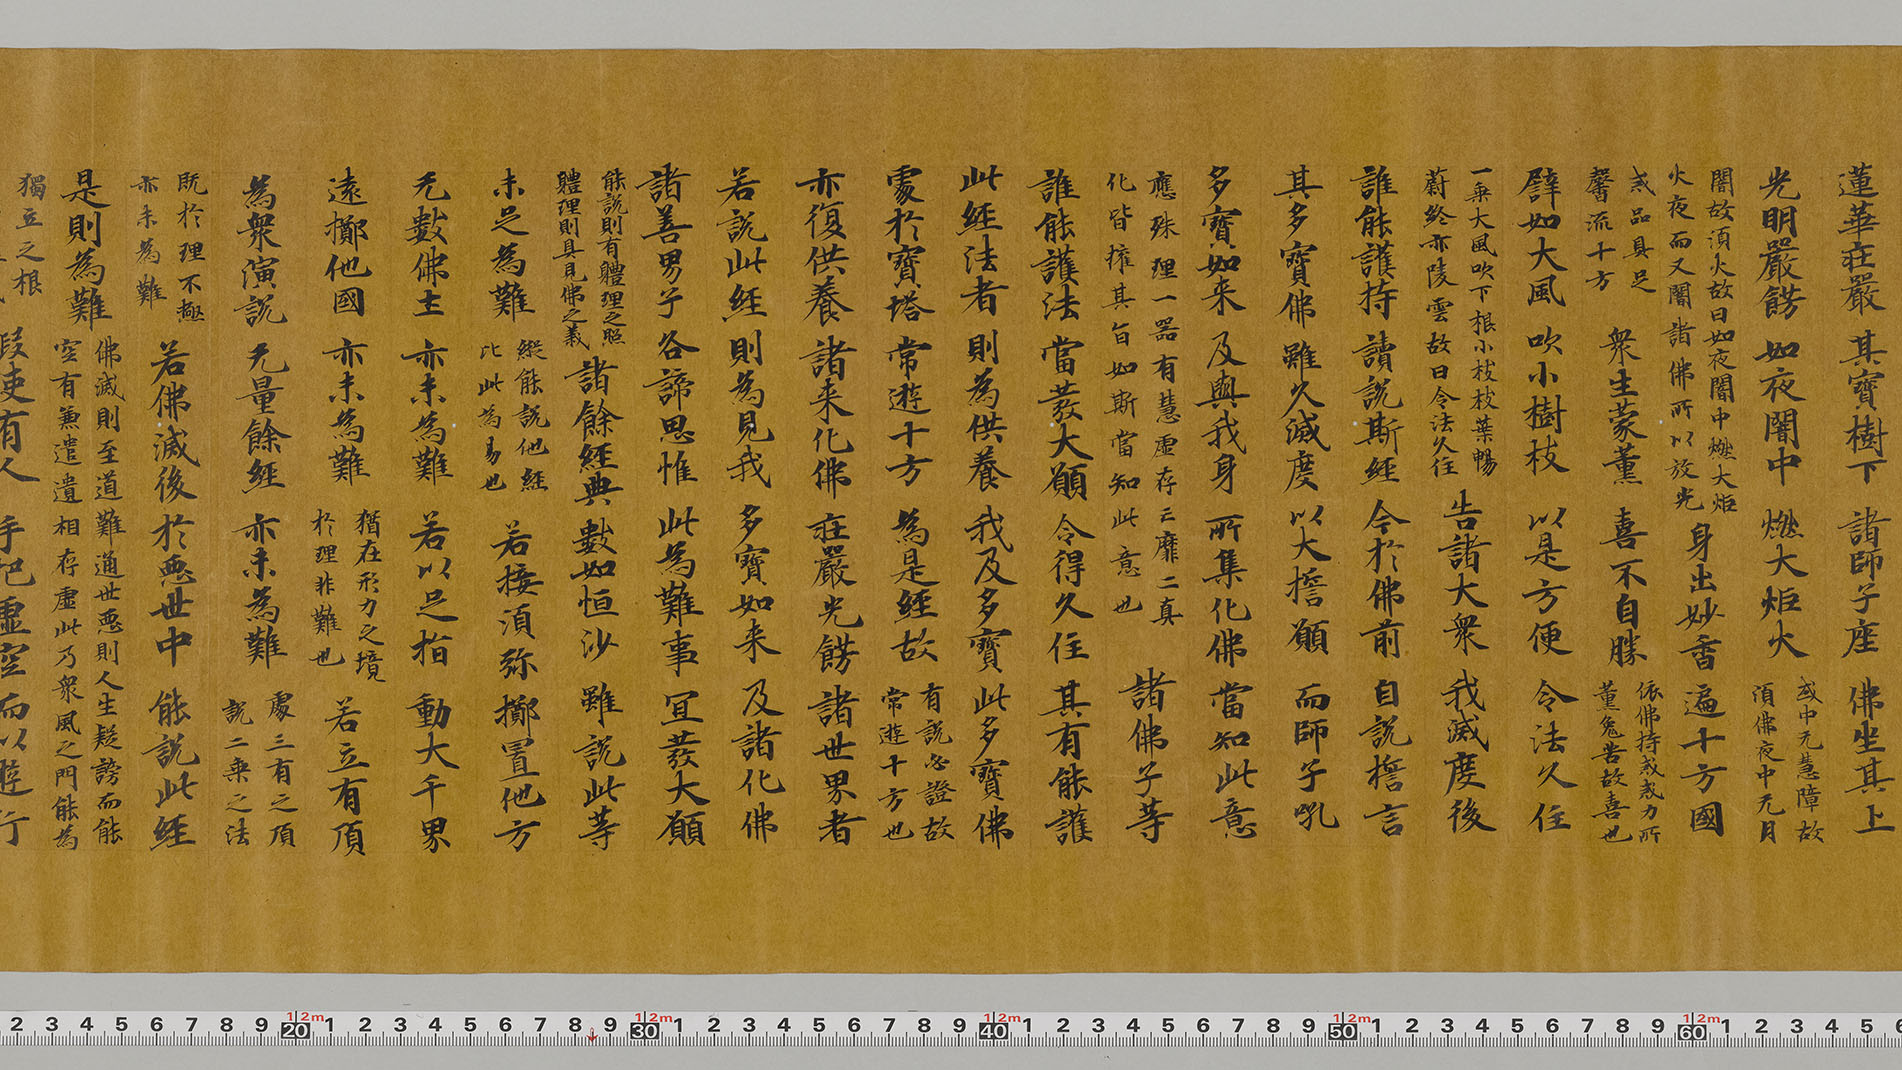 蓮華莊嚴 其寶樹下 諸師子座 佛坐其上
光明嚴餝 如夜闇中 燃大炬火
戒中无慧障故
須佛夜中无月
闇故須火故曰如夜闇中燃大炬
火夜而又闇諸佛所以放光
身出妙香 遍十方國
戒品具足
馨流十方
衆生蒙薰 喜不自勝
依佛持戒戒力所
薰兔苦故喜也
譬如大風 吹小樹枝 以是方便 令法久住
一乗大風吹下根小枝枝葉暢
蔚終亦陵雲故曰令法久住
告諸大衆 我滅度後
誰能護持 讀說斯經 今於佛前 自說誓言
其多寶佛 雖久滅度 以大誓願 而師子吼
多寶如来 及與我身 所集化佛 當知此意
應殊理一器有慧虚存三靡二真
化皆摧其旨如斯當知此意也
諸佛子等
誰能護法 當發大願 令得久住 其有能護
此經法者 則為供養 我及多寶 此多寶佛
處於寶塔 常遊十方 為是經故
有說必證故
常遊十方也
亦復供養 諸来化佛 莊嚴光餝 諸世界者
若說此經 則為見我 多寶如来 及諸化佛
諸善男子 各諦思惟 此為難事 宜發大願
能說則有體理之照
體理則具見佛之義
諸餘經典 數如恒沙 雖說此等
未足為難
縱能說他經
比此為易也
若接須弥 擲置他方
无數佛土 亦未為難 若以足指 動大千界
遠擲他國 亦未為難
猶在形力之境
於理非難也
若立有頂
為衆演說 无量餘經 亦未為難
處三有之頂
說二乗之法
既於理不極
亦未為難
若佛滅後 於惡世中 能說此經
是則為難
佛滅則至道難通世惡則人生疑謗而能
空有兼遣遺相存虚此乃衆風之門能為
獨立之根
假使有人 手把虛空 而以遊行